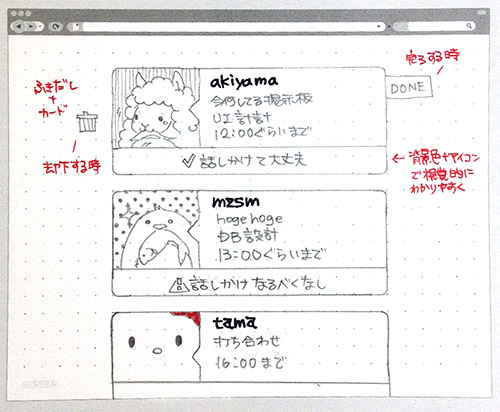 ふきだし
+
カード
却下する時
akiyama
今何してる掲示板
UI設計
12:00ぐらいまで
話しかけて大丈夫
完了する時
DONE
← 背景色やアイコン
で視覚的に
わかりやすく
mzsm
hogehoge
DB設計
13:00ぐらいまで
話しかけなるべくなし
tama
打ち合わせ
16:00まで
SCREEN